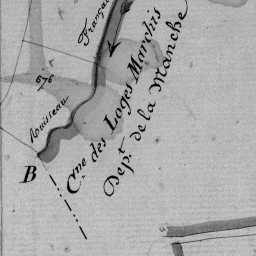 Français
Ruisseau
B
Cne des Loges Marchis
Dept. de la Manche